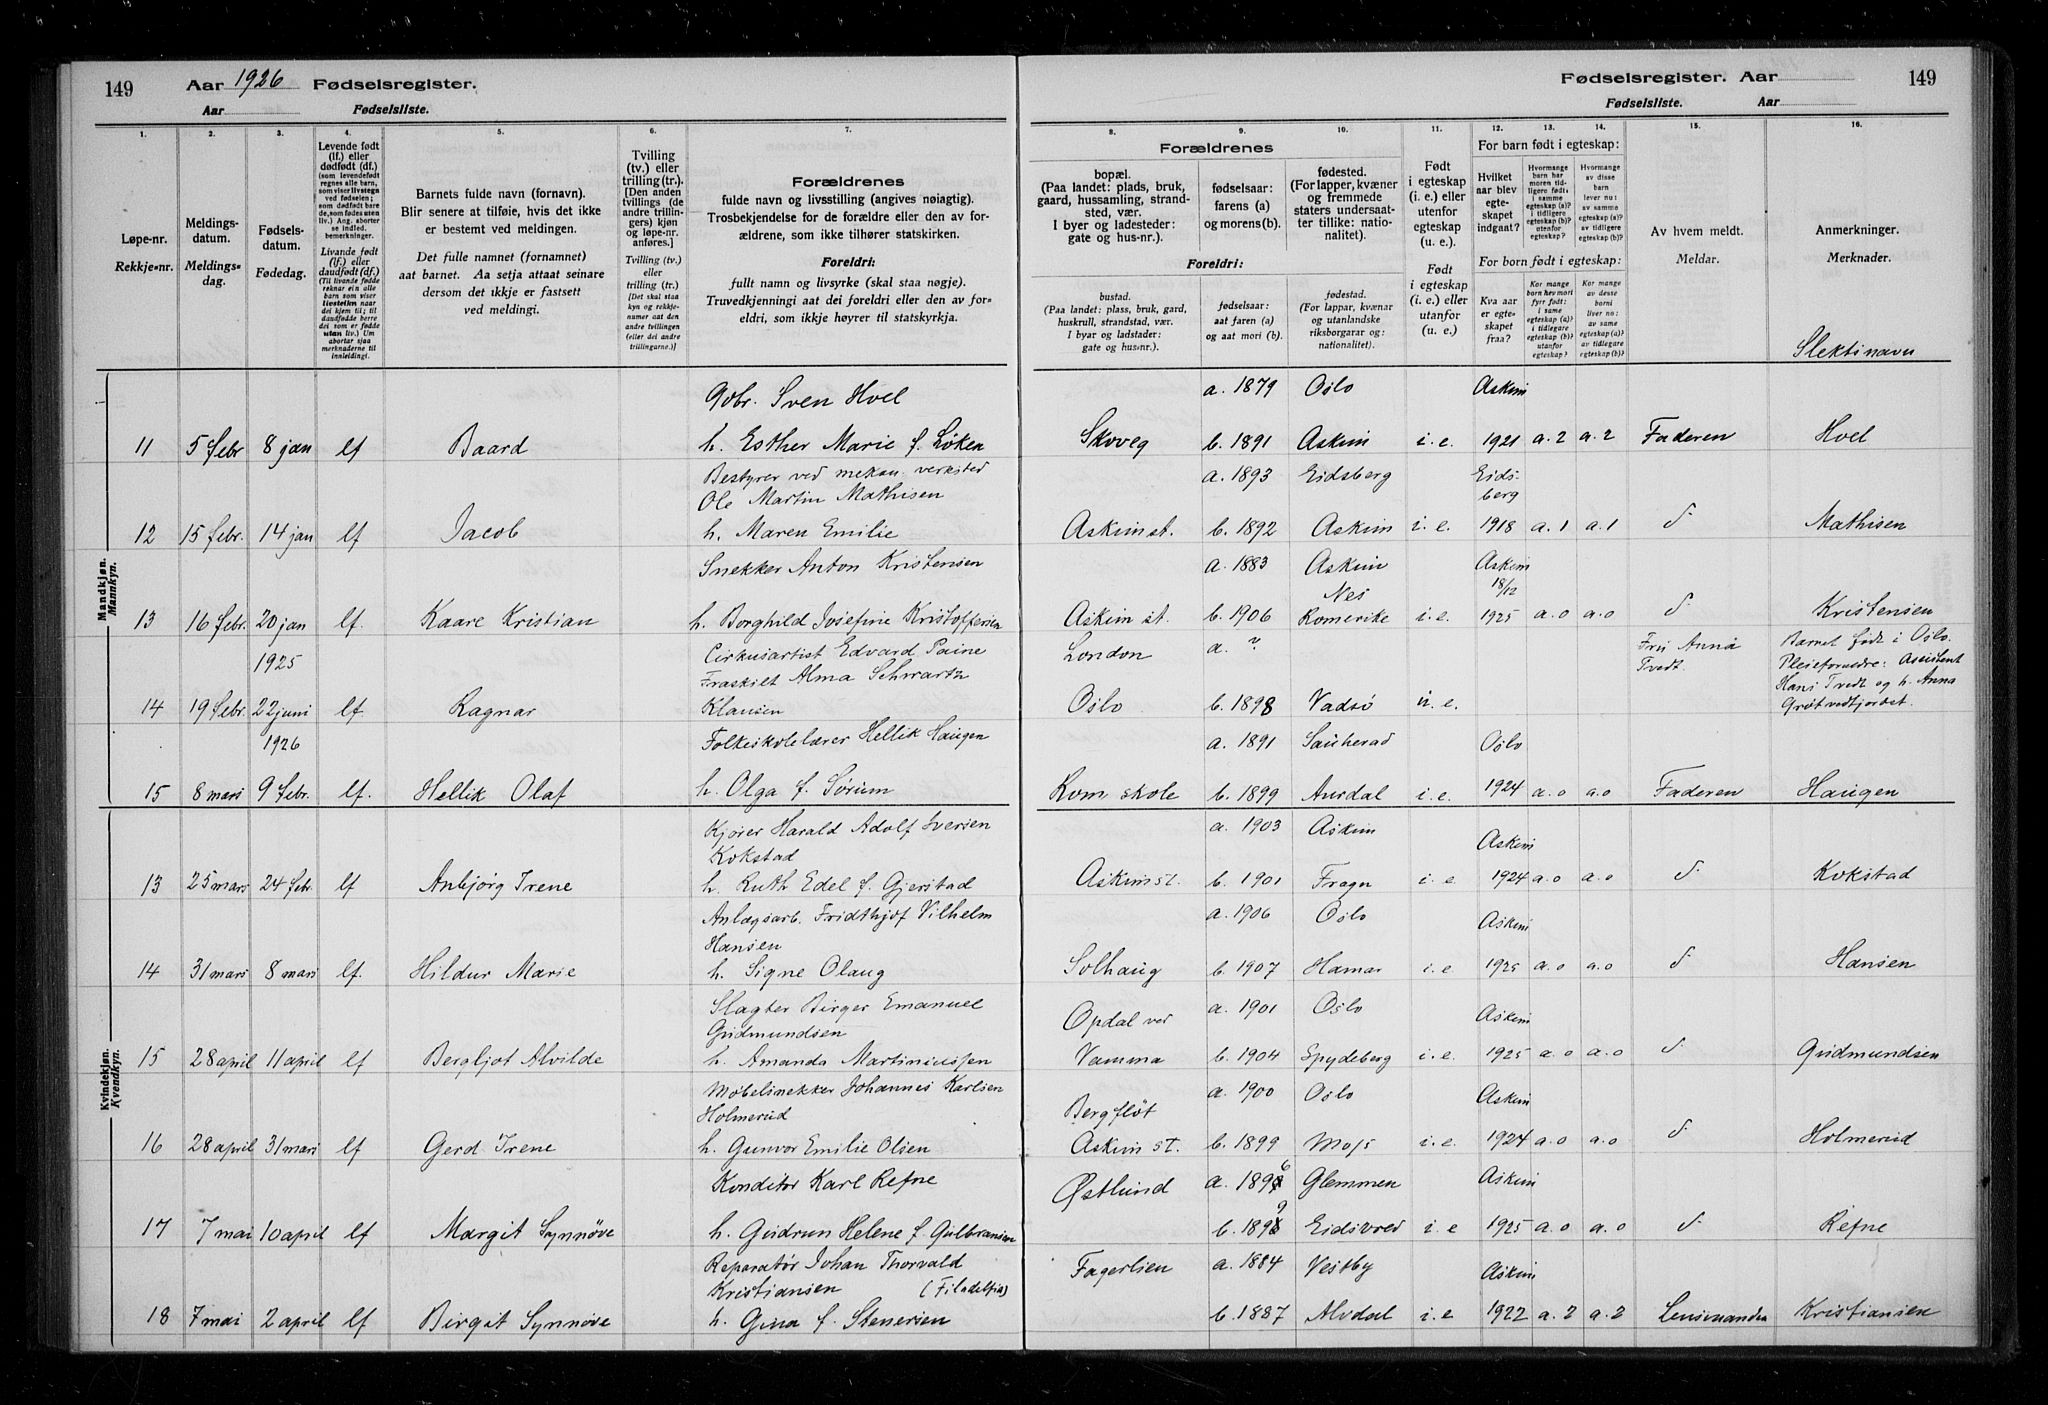 149 Aar 1926 Fødselsregister.
Aar Fødselsliste.
Fødselsregister. Aar 149
Fødselsliste. Aar
1. 2. 3. 4. 5. 6. 7.
Løpe-nr.
Rekkje-nr.
Meldings-
datum.
Meldings-
dag.
Fødsels-
datum.
Fødedag.
Levende født
(lf.) eller
dødfødt (df.)
(som levendefødt
regnes alle barn,
som viser livstegn
ved fødselen;
som dødfødt bare
de, som fødes uten
liv.) Ang. aborter
se indled.
bemerkninger.
Livande født
(lf.) eller
daudfødt (df.)
(Til livande fødde
reknar ein alle
born som viser
livsteikn naar
dei kjem til; til
daudfødde berre
dei som er fødde
utan liv.) Um
abortar sjaa
merknaderne til
innleidingi.
Barnets fulde navn (fornavn).
Blir senere at tilføie, hvis det ikke
er bestemt ved meldingen.
Det fulle namnet (fornamnet)
aat barnet. Aa setja attaat seinare
dersom det ikkje er fastsett
ved meldingi.
Tvilling
(tv.) eller
trilling (tr.).
[Den anden
tvillings (de
andre trillin-
gers) kjøn
og løpe-nr.
anføres.]
Tvilling (tv.)
eller
trilling (tr.)
[Det skal staa
kyn og rekkje-
numer aat den
andre tvillingen
(eller dei andre
trillingarne.)]
Forældrenes
fulde navn og livsstilling (angives nøiagtig).
Trosbekjendelse for de forældre eller den av for-
ældrene, som ikke tilhører statskirken.
Foreldri:
fullt namn og livsyrke (skal staa nøgje).
Truvedkjenningi aat dei foreldri eller den av for-
eldri, som ikkje høyrer til statskyrkja.
8. 9. 10. 11. 12. 13. 14. 15. 16.
Forældrenes
bopæl.
(Paa landet: plads, bruk,
gaard, hussamling, strand-
sted, vær.
I byer og ladesteder:
gate og hus-nr.).
fødselsaar:
farens (a)
og morens (b).
fødested.
(For lapper, kvæner
og fremmede
staters undersaat-
ter tillike: natio-
nalitet).
Foreldri:
bustad.
(Paa landet: plass, bruk, gard,
huskrull, strandstad, vær.
I byar og ladstader:
gate og hus-nr.).
fødselsaar:
aat faren (a)
og aat mori (b).
fødestad.
(For lappar, kvænar
og utanlandske
riksborgarar og:
nationalitet).
Født
i egteskap
(i. e.) eller
utenfor
egteskap
(u. e.).
Født
i egteskap
(i. e.) eller
utanfor
(u. e.).
For barn født i egteskap:
Hvilket
aar blev
egte-
skapet
indgaat?
Hvormange
barn har
moren tid-
ligere født:
i samme
egteskap (a)?
i tidligere
egteskap (b)?
utenfor
egteskap?
Hvormange
av disse
barn
lever nu:
av samme
egteskap (a)?
av tidligere
egteskap (b)?
For born født i egteskap:
Kva aar
er egte-
skapet
fraa?
Kor mange
born hev mori
fyrr født:
i same
egteskap (a)?
i tidlegare
egteskap (b)?
utanfor
egteskap?
Kor mange
av desse
borni
liver no:
av same
egteskap (a)?
av tidlegare
egteskap (b)?
Av hvem meldt.
Meldar.
Anmerkninger.
Merknader.
Slektsnavn
Mandkjøn.
Mannkyn.
Gbr. Sven Hoel a. 1879 Oslo Askim
11 5 febr 8 jan lf Baard h. Esther Marie f. Løken Skoveg b. 1891 Askim i. e. 1921 a. 2 a. 2 Faderen Hoel
Bestyrer ved mekan. verksted a. 1893 Eidsberg Eids-
Ole Martin Mathisen berg
12 15 febr. 14 jan lf Jacob h. Maren Emilie Askim st. b. 1892 Askim i. e. 1918 a. 1 a. 1 d. Mathisen
Snekker Anton Kristensen a. 1883 Askim Askim
Nes 18/12
13 16 febr. 20 jan lf. Kaare Kristian h. Borghild Josefine Kristoffersen Askim st. b. 1906 Romerike i. e. 1925 a. 0 a. 0 d. Kristensen
1925 Cirkusartist Edvard Paine London a. ? Frø Anna Barnet født i Oslo.
Fraskilt Alma Schwartz Tvedt. Pleieforældre: Assistent
Hans Tvedt og h. Anna
14 19 febr. 22 juni lf. Ragnar Klausen Oslo b. 1898 Vadsø u. e. Grøtvedtjordet.
1926 Folkeskolelærer Hellik Haugen a. 1891 Sauherad Oslo
15 8 mars 9 febr. lf. Hellik Olaf h. Olga f. Sørum Kom skole b. 1899 Aurdal i. e. 1924 a. 0 a. 0 Faderen Haugen
Kvindekjøn.
Kvendkyn.
Kjører Harald Adolf Iversen a. 1903 Askim
Kokstad Askim
13 25 mars 24 febr. lf Anbjørg Irene h. Ruth Edel f. Gjerstad Askim st. b. 1901 Frogn i. e. 1924 a. 0 a. 0 d. Kokstad
Anlægsarb. Fridthjof Vilhelm a. 1906 Oslo Askim
Hansen
14 31 mars 8 mars lf. Hildur Marie h. Signe Olaug Solhaug b. 1907 Hamar i. e. 1925 a. 0 a. 0 d. Hansen
Slagter Birger Emanuel Opdal ved a. 1901 Oslo Askim
Gudmundsen
15 28 april 11 april lf Bergljot Alvilde h. Amanda Martiniussen Vamma b. 1904 Spydeberg i. e. 1925 a. 0 a. 0 d. Gudmundsen
Møbelsnekker Johannes Karlsen a. 1900 Oslo Askim
Holmerud Bergfløt
16 28 april 31 mars lf Gerd Irene h. Gunvor Emilie Olsen Askim st. b. 1899 Moss i. e. 1924 a. 0 a. 0 d. Holmerud
Konditor Karl Refne Østlund a. 1896 Glemmen Askim
17 7 mai 10 april lf Margit Synnøve h. Gudrun Helene f. Gulbransen b. 1899 Eidsvold i. e 1925 a. 0 a. 0 d. Refne
Reparatør Johan Thorvald Fagerlien a. 1884 Vestby Askim
Kristiansen (Filadelfia)
18 7 mai 2 april lf Birgit Synnøve h. Gina f. Stenersen b. 1887 Alvdal i. e 1922 a. 2 a. 2 Lensmanden Kristiansen